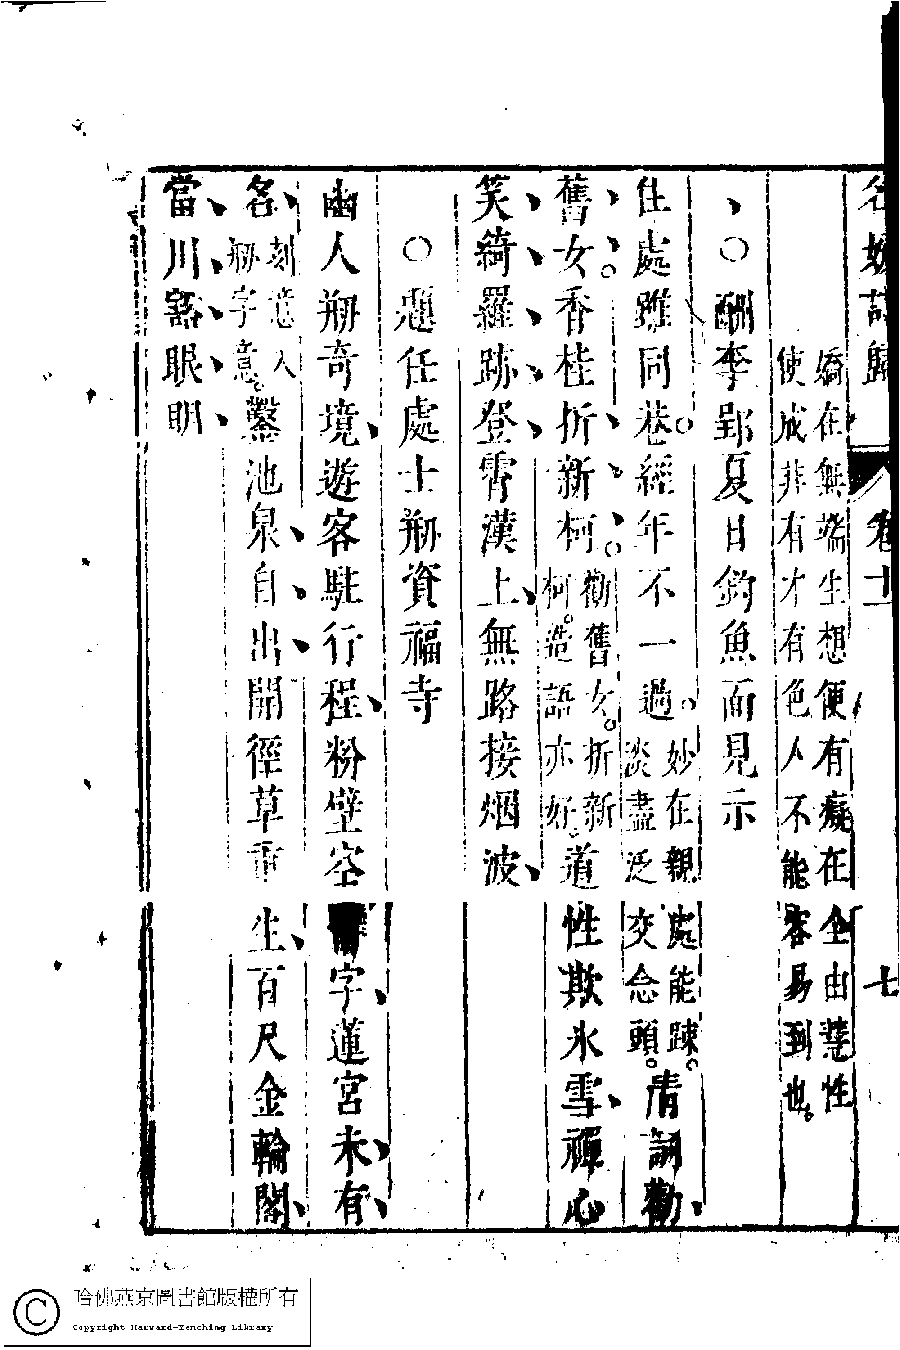 名媛詩歸 卷十一 七
嬌在無端生想便有癡在全由慧性
使成非有才有色人不能容易到也。
○酬李郢夏日釣魚面見示
住處雖同巷。經年不一過。妙在親處能踈。
淡盡泛交念頭。清詞勸
舊女。香桂折新柯。勸舊女。折新
柯。造語亦好。道性欺氷雪禪心
笑綺羅跡登霄漢上無路接烟波
○題任處士剏資福寺
幽人剏奇境遊客駐行程粉壁空書字蓮宮未有
名刻意入
剏字意。鑿池泉自出開徑草重生百尺金輪閣
當川豁眼明
哈佛燕京圖書館版權所有
Copyright Harvard-Yenching Library